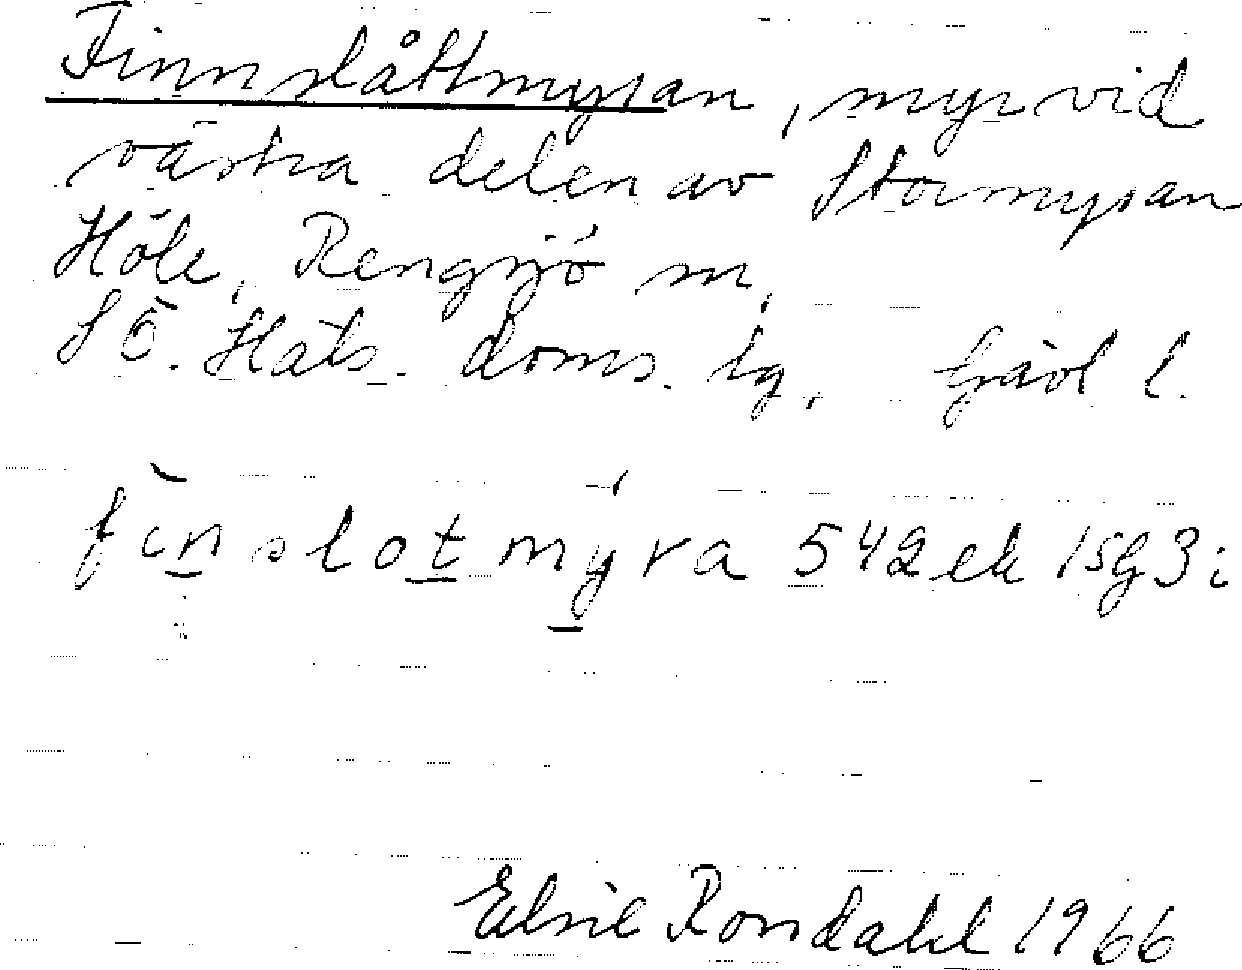 Finnslåttmyran, myr vid
västra delen av Stormyran
Höle, Rengsjö sn,
SÖ. Häls. doms. lg, Gävl l.
fìnslotmýra 542 ek 15g3i
Elsie Rondahl 1966